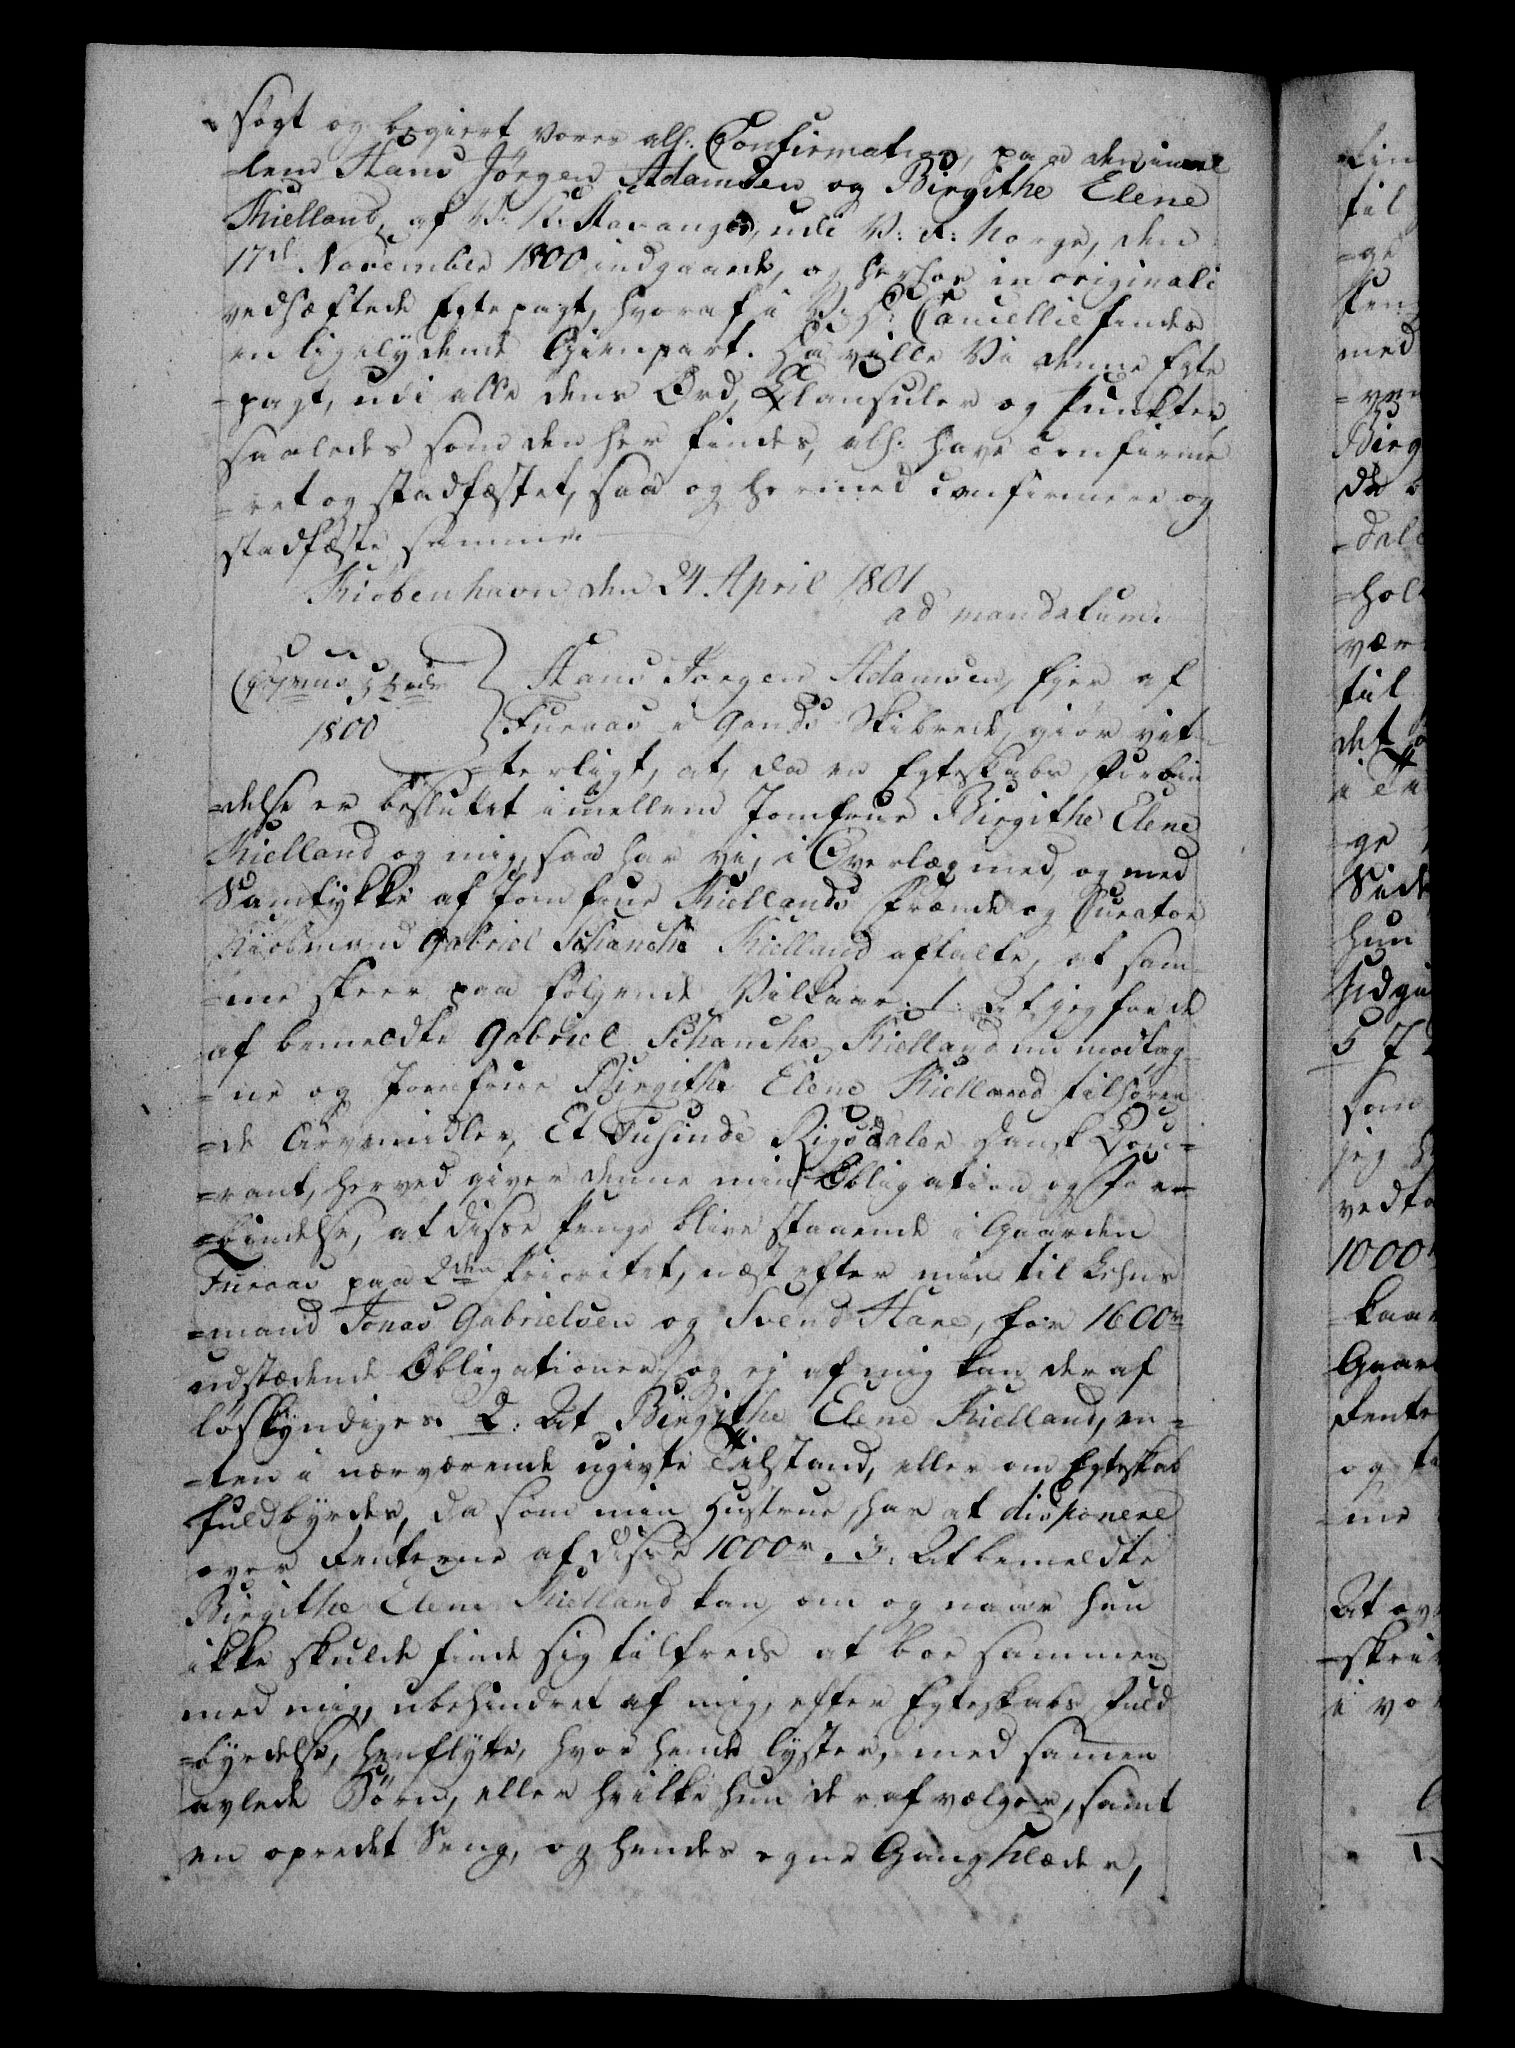 søgt og begiert Vores alh: Confirmation, paa den imel
-lem Hans Jörgen Adamsen og Birgithe Elene
Kielland, af V: K: Stavanger, udi V: R: Norge, den
17de November 1800 indgaaede, og herhos in originali
vedhæftede Egtepagt, hvoraf i V: D: Cancellie findes
en ligelydende Gienpart. Da ville Vi denne Egte
-pagt, udi alle dens Ord, Klausuler og Punkter,
saaledes som den her findes, alh: have confirme
-ret og stadfæstet, saa og hermed confirmere og
stadfæste samme.
Kiöbenhavn den 24 April 1801
ad mandatum.
1800
Hans Jörgen Adamsen, Ejer af
Fueraas i Gands Skibrede, giör vit-
-terligt, at, da en Egteskabs Forbin
-delse er besluttet imellem Jomfrue Birgithe Elene
Kielland og mig, saa har vi, i Overlæg med, og med
Samtykke af Jomfrue Kiellands Frænde og Curator
Kiöbmand Gabriel Schanche Kielland aftalte, at sam-
-me skeer paa følgende Vilkaar: 1: At jeg for de
af bemeldte Gabriel Schanche Kielland nu modtag-
-ne og Jomfrue Birgithe Elene Kielland tilhøren
-de Arvemidler, Et Tusinde Rigsdaler Dansk Cou-
-rant, herved giver denne min Obligation og For-
-bindelse, at disse Penge blive staaende i Gaarden
Fueraas paa 2den Prioritet, næst efter min til Lehns
-mand Jonas Gabrielsen og Svend Hane, for 1600 r
udstædende Obligationer, og ej af mig kan deraf
løskyndiges. 2: At Birgithe Elene Kielland, en-
-ten i nærværende ugivte Tilstand, eller om Egteskab
fuldbyrdes, da som min Hustrue, har at disponere
over Renterne af disse 1000 r. 3. At bemeldte
Birgithe Elene Kielland kan, om og naar hun
ikke skulde finde sig tilfreds at boe sammen
med mig, ubehindret af mig, efter Egteskabs Fuld
-byrdelse, henflytte, hvor hende lyster, med sammen
avlede Börn, eller hvilke hun deraf vælger, samt
en opredet Seng, og hendes egne Gangklæder,